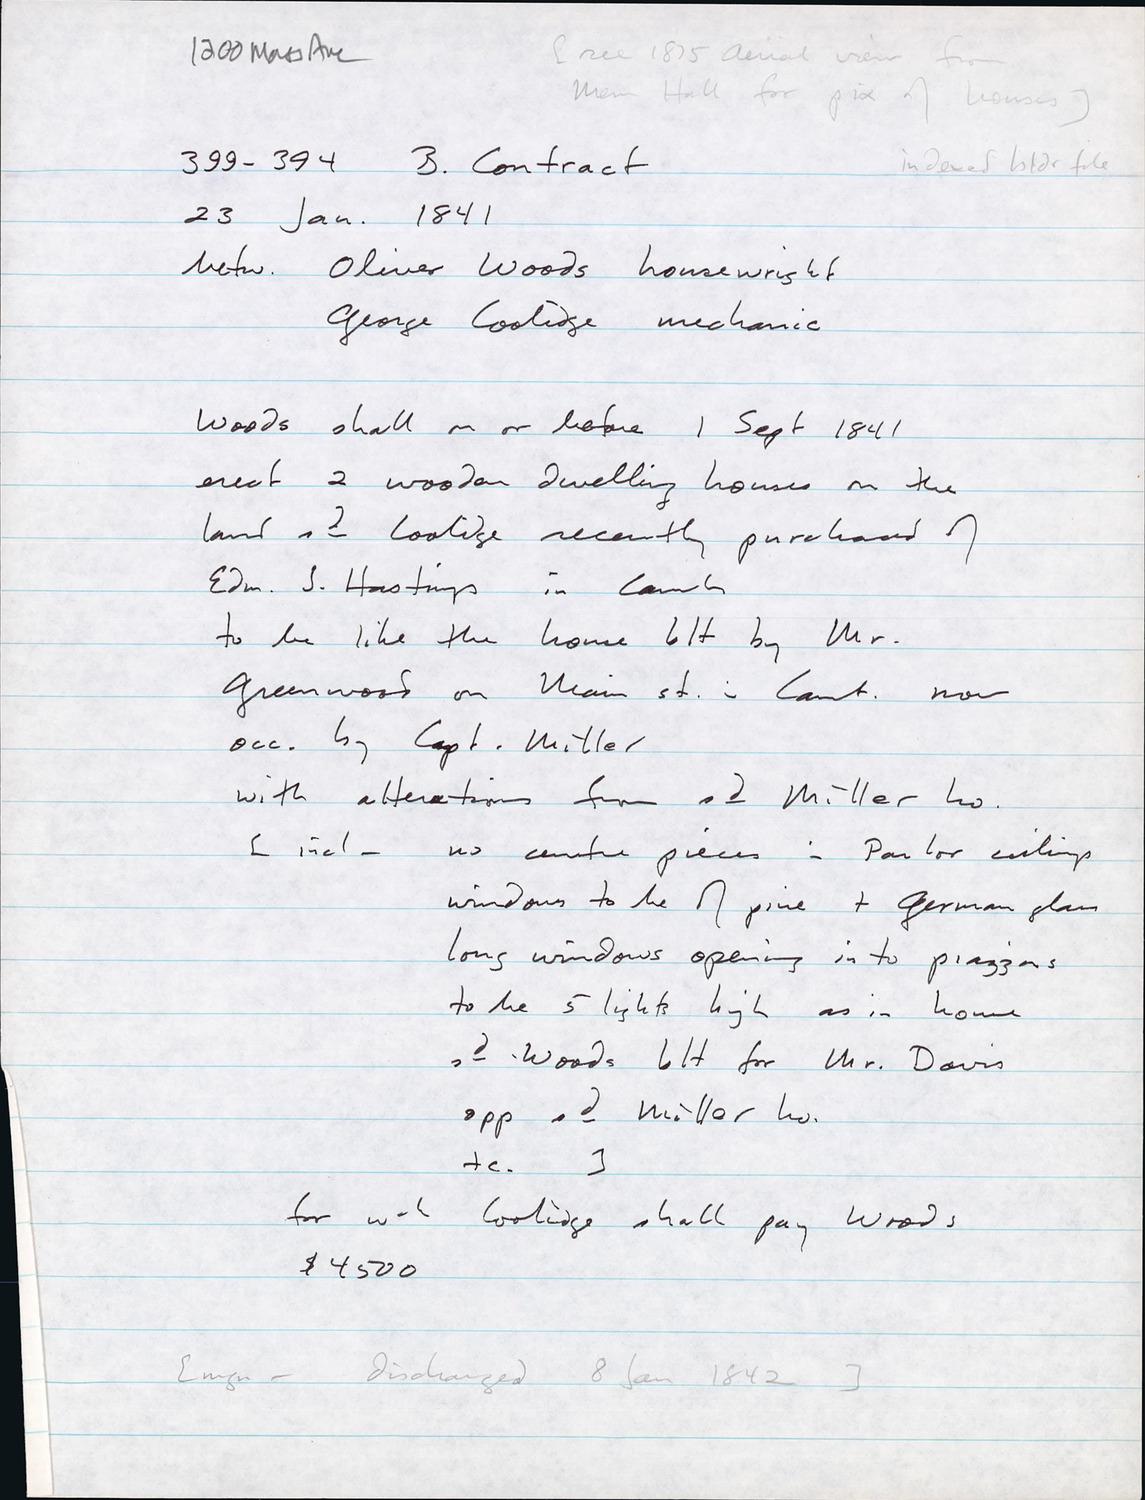 1200 Mass Ave
[see 1875 aerial view from
Mem Hall for pix of houses]
399-394 B. Contract
indexed bldr file
23 Jan. 1841
betw. Oliver Woods housewright
George Coolidge mechanic
Woods shall on or before 1 Sept 1841
erect 2 wooden dwelling houses on the
land sd Coolidge recently purchased of
Edm. T. Hastings in Camb
to be like the house blt by Mr.
Greenwood on Main st. in Camb. now
occ. by Capt. Miller
with alterations from sd Miller ho.
[incl - no centre pieces in Parlor ceilings
windows to be of pine + German glass
long windows opening into piazzas
to be 5 lights high as in house
sd Woods blt for Mr. Davis
opp sd Miller ho.
+c. ]
for wch Coolidge shall pay Woods
$4500
[mgn - discharged 8 Jan 1842 ]